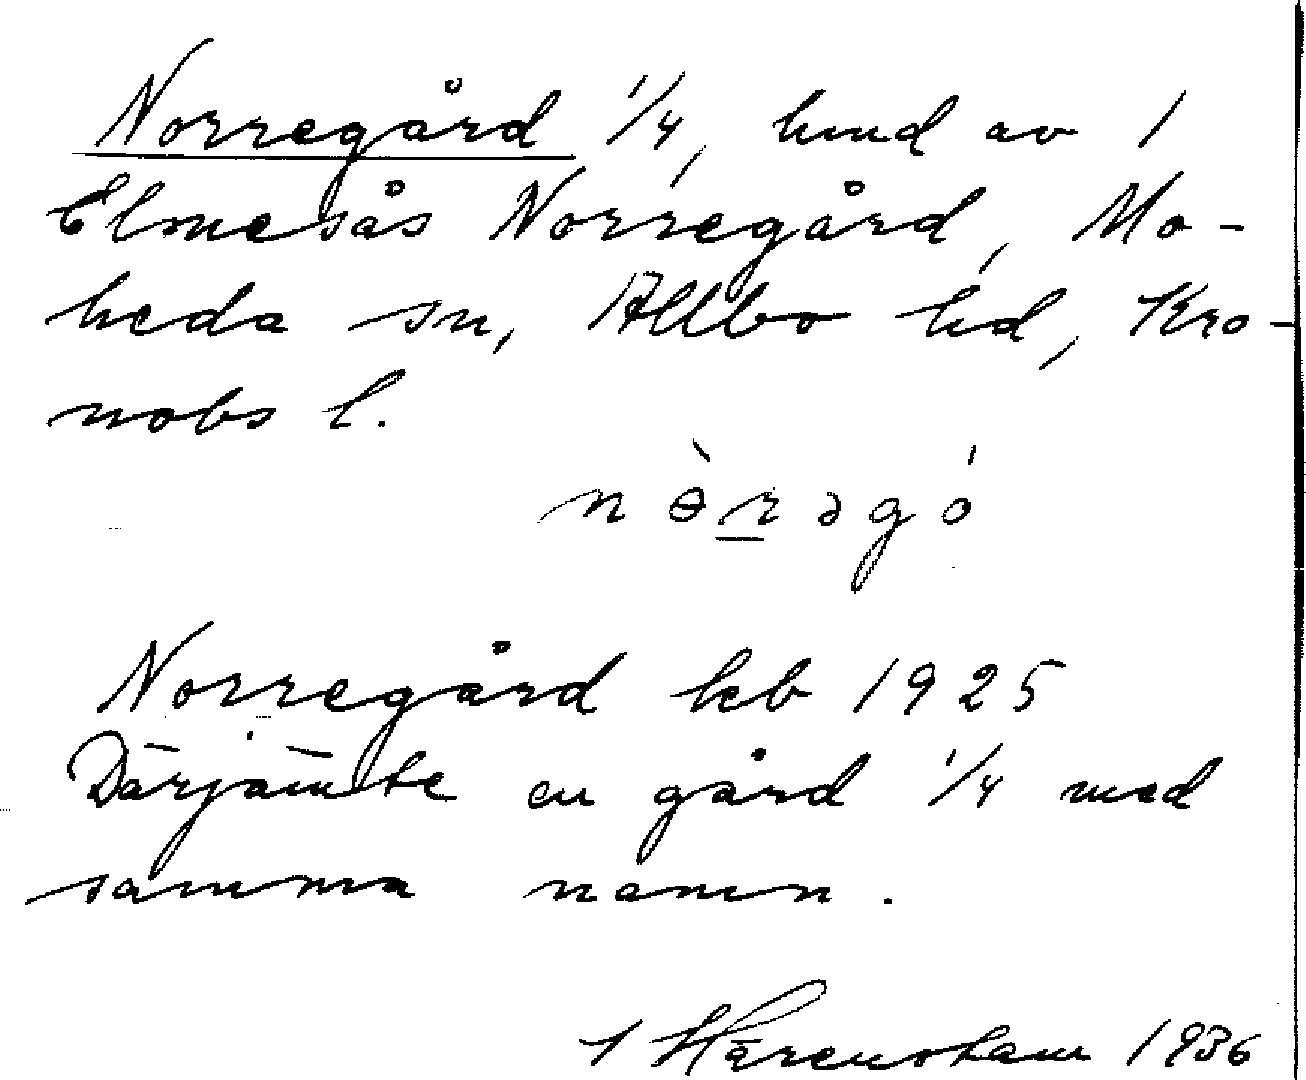 Norregård 1/4, hmd av 1
Elmesås Norregård, Mo-
heda sn, Allbo hd, Kro-
nobs l.
nɵ̀rəgó
Norregård kb 1925
Därjämte en gård 1/4 med
samma namn.
1936